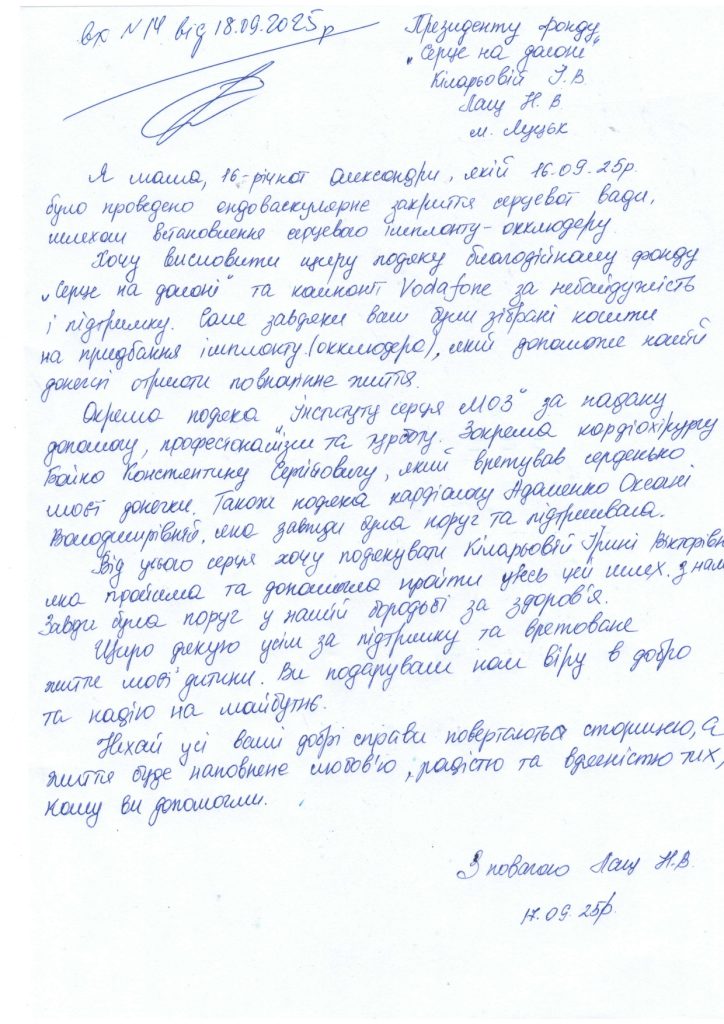 вх N 14 від 18.09.2025р
Президенту фонду
„Серце на долоні"
Кіларьовій І.В.
Лащ Н. В.
м. Луцьк
Я мама, 16-річної Олександри, якій 16.09.25р.
було проведено ендоваскулярне закриття серцевої вади,
шляхом встановлення серцевого імпланту-окклюдеру.
Хочу висловити щиру подяку благодійному фонду
„Серце на долоні" та компанії Vodafone за небайдужість
і підтримку. Саме завдяки вам були зібрані кошти
на придбання імпланту (окклюдера), який допоможе нашій
донечці отримати повноцінне життя.
Окрема подяка "Інституту серця МОЗ" за надану
допомогу, професіоналізм та турботу. Зокрема кардіохірургу
Бойко Констянтину Сергійовичу, який врятував серденько
моєї донечки. Також подяка кардіологу Адаменко Оксані
Володимирівній, яка завжди була поруч та підтримувала.
Від усього серця хочу подякувати Кіларьовій Ірині Вікторівн
яка пройшла та допомогла пройти увесь цей шлях з нам
Завди була поруч у нашій бородьбі за здоров'я.
Щиро дякую усім за підтримку та врятоване
життя моєї дитини. Ви подарували нам віру в добро
та надію на майбутнє.
Нехай усі ваші добрі справи повертаються сторицею, а
життя буде наповнене любов'ю, радістю та вдячністю тих,
кому ви допомогли.
З повагою Лащ Н.В.
17.09.25р.